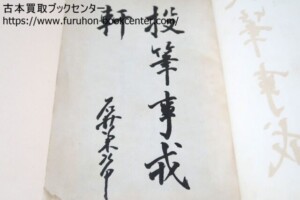 古本買取ブックセンター
https://www.furuhon-bookcenter.com/
投筆事戎
軒